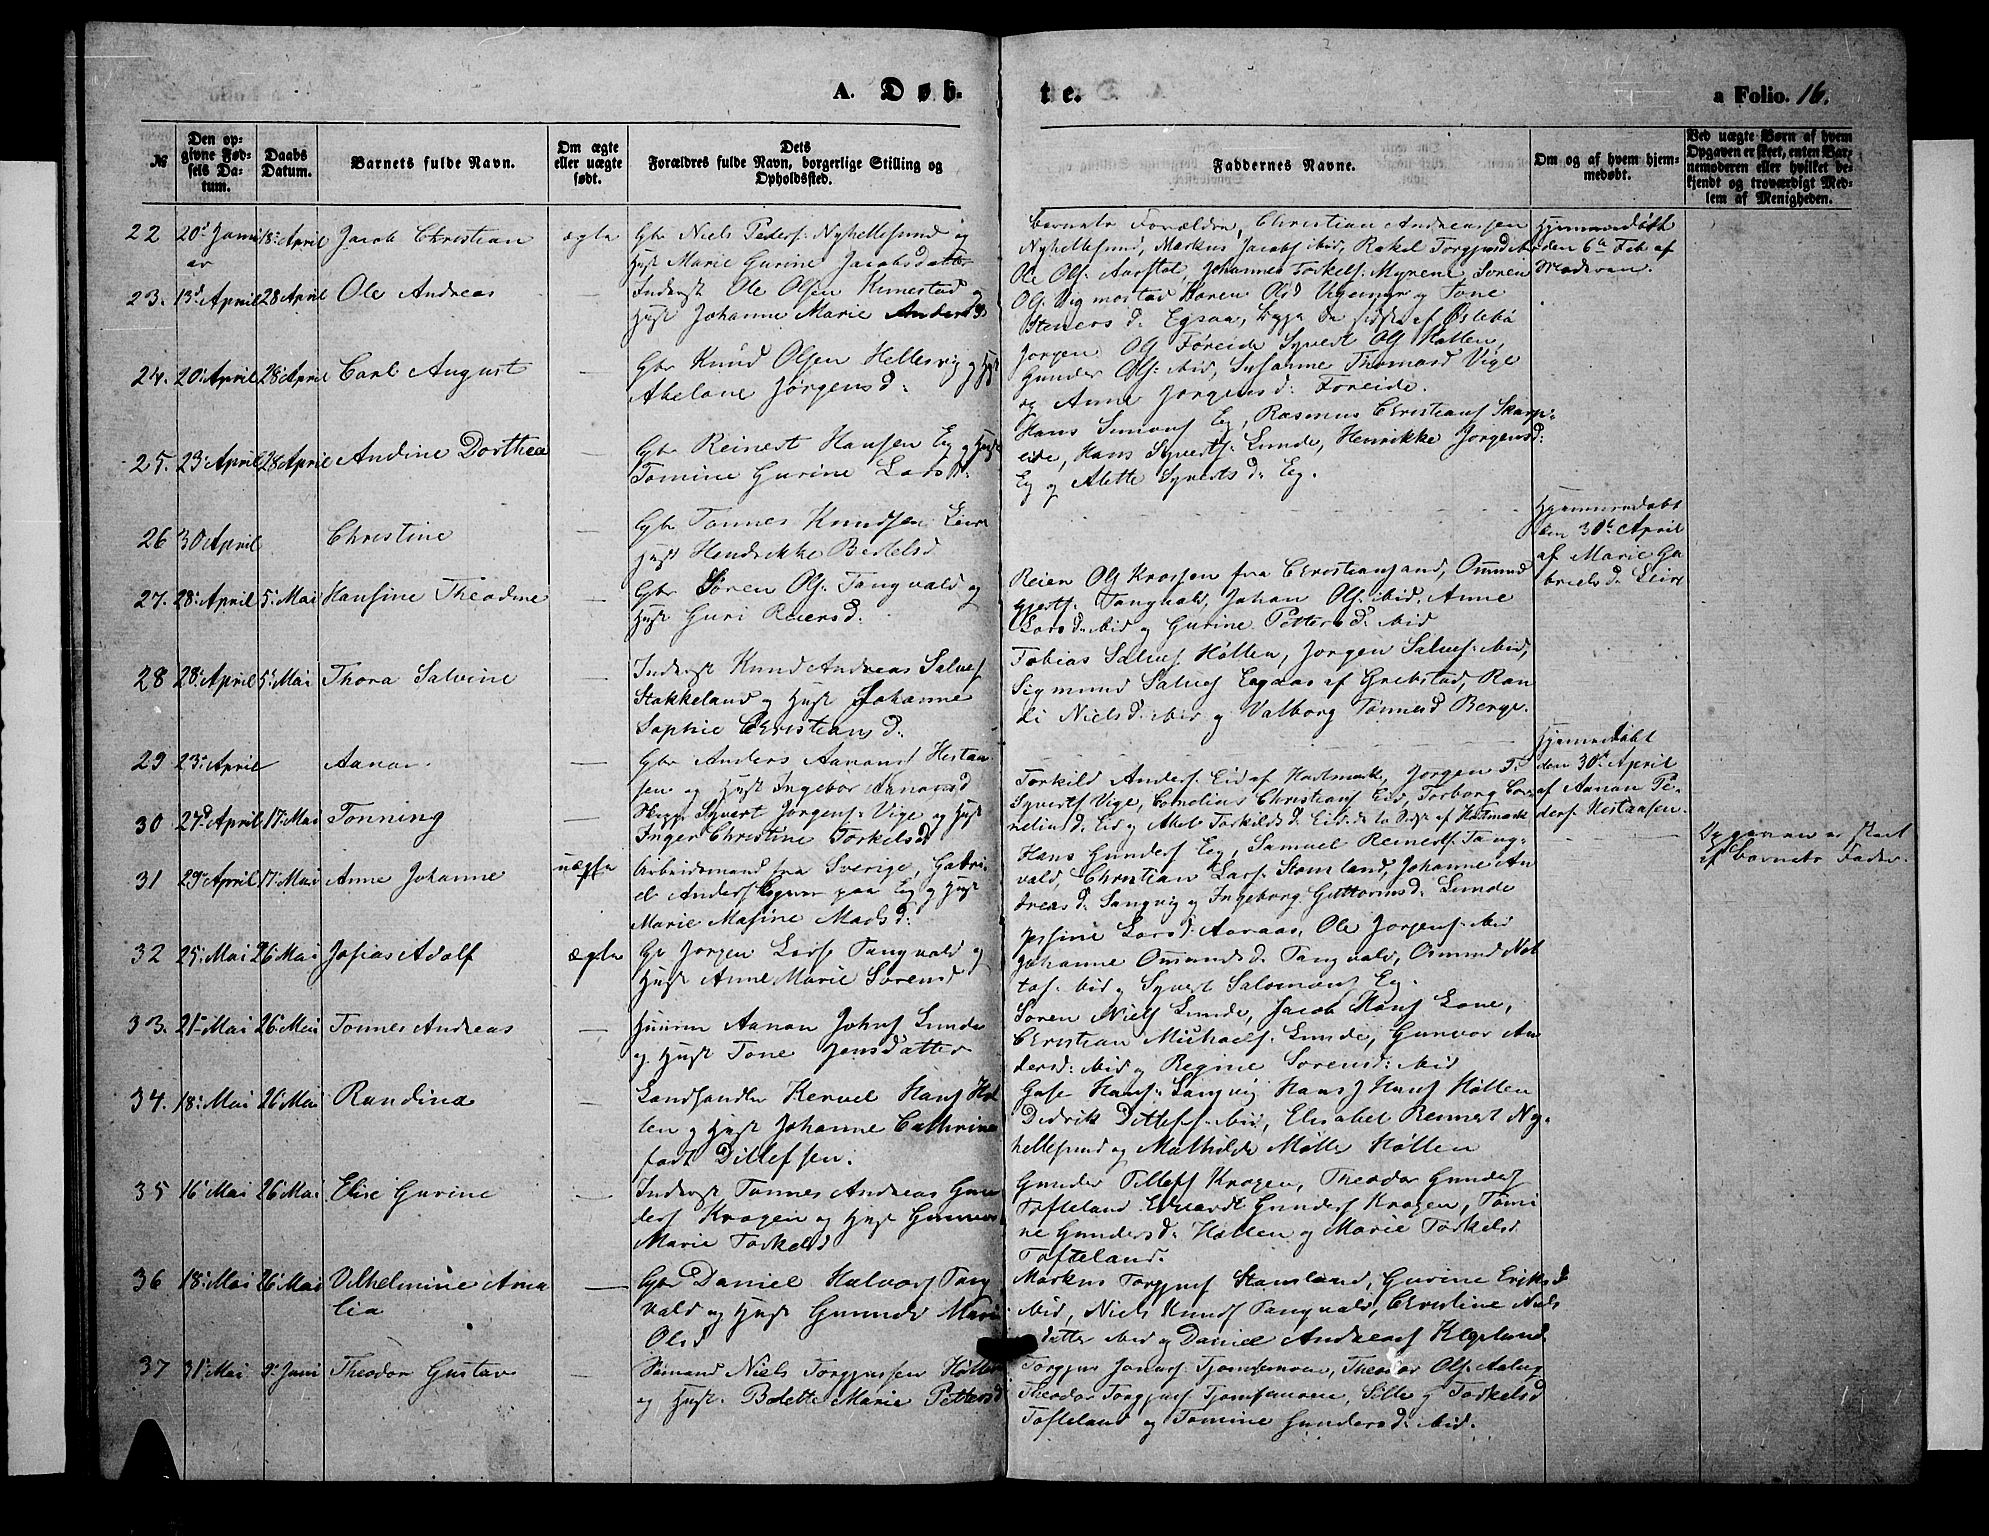 A. Døb-
te.
a Folio. 16.
№
Den op-
givne Fød-
sels Da-
tum.
Daabs
Datum.
Barnets fulde Navn.
Om ægte
eller uægte
født.
Dets
Forældres fulde Navn, borgerlige Stilling og
Opholdssted.
Faddernes Navne.
Om og af hvem hjem-
medøbt.
Ved uægte Børn af hvem
Opgaven er skeet, enten Bar-
nemoderen eller hvilket be-
kjendt og troværdigt Med-
lem af Menigheden.
22 20d Janu 18 April Jacob Christian ægte Gbr Niels Peders. Nyhellesund og
ar Hust Marie Gurine Jacobsdatter
Barnets Forældre, Christian Andreassen
Nyhellesund, Markus Jacobs. ibid, Rakel Torgjusd ibid
Hjemmedøbt
den 6te Feb af
Moderen.
23. 13d April 28 April Ole Andreas — Inderst Ole Olsen Kimestad og
Hust Johanne Marie Andersd
Ole Ols. Aarstol, Johannes Torkels. Myrene, Soren
Ols. Vigmostad, Karen Olsd Vigemyr og Tone
Steners d. Egsaa, begge de sidste af Øslebø
24. 20 April 28 April Carl August — Gbr Knud Olsen Hellesvig og Hust
Abelone Jørgens d.
Jorgen Ols Føreide, Syvert Ols Høllen,
Gunder Ols. ibid, Susanne Thomasd Vige
og Anne Jorgens d. Foreide.
25. 23 April 28 April Andine Dorthea — Gbr Reinert Hansen Eg og Hust
Tomine Gurine Lars d.
Hans Simons Eg, Rasmus Christians Skarp-
eie, Hans Syverts. Lunde, Henrikke Jorgensd.
Eg og Alette Syverts d. Eg.
26 30 April Christine — Gbr Tonnes Knudsen Leire
Hust Hendrikke Bertelsd
Hjemmedøbt
den 30te April
af Marie Ga
briels d. Leire
27. 28 April 5 Mai Hansine Theodine — Gbr Søren Ols. Tangvald og
Hust Guri Reiersd.
Reier Ols Krossen fra Christiansand, Omund
Gjerts. Tangvald, Johan Ols. ibid, Anne
Lars d. ibid og Gurine Petters d. ibid
28 28 April 5 Mai Thora Salvine — Inderst Knud Andreas Salves
Stokkeland og Hust Johanne
Sophie Christians d.
Tobias Salves. Høllen, Jorgen Salves. ibid,
Sigmund Salves Egaas af Grebstad, Ran
di Niels d. ibid og Valborg Tønnesd Berge.
29 23 April Aanon — Gbr Anders Aanons Hestaa-
sen og Hust Ingebor Aanonsd
Hjemmedøbt
den 30te April
af Aanon Pe
ders. Hestaasen.
30 27d April 17 Mai Tonning — Skipr. Syvert Jørgens. Vige og Hust
Inger Christine Torkelsd
Torkild Anders. Eid af Hartmark, Jorgen T.
Syverts Vige, Cornelius Christians Eid, Torborg Cor-
nelius d. Eid og Abel Torkilds d. Eid, de to sidste af Hartmark
31 29 April 17 Mai Anne Johanne uægte Arbeidsmand fra Sverige, Gabri-
el Anders Egner paa Eg og Hust
Marie Masine Mads d.
Hans Gunders Eg, Samuel Reinerts. Tang-
vald, Christian Lars. Stamland, Johanne An
dreas d. Langvig og Ingeborg Guttorms d. Lunde
Opgaven er skeet
af Barnets Fader.
32 25 Mai 26 Mai Josias Adolf ægte Gbr Jorgen Lars Tangvald og
Hust Anne Marie Sorensd
Jessine Lars d. Aaraas, Ole Jorgens. ibid
Johanne Omunds d. Tangvald, Osmund Not
tos. ibid og Syvert Salomons Eg.
33. 21 Mai 26 Mai Tonnes Andreas — Huusm Aanon Johns Lunde
og Hust Tone Jensdatter
Soren Niels Lunde, Jacob Hans Lone,
Christian Michaels. Lunde, Gunvor An
dersd. ibid og Regine Sorensd. ibid
34. 18 Mai 26 Mai Randine — Landhandler Kervel Hans Høl
len og Hust Johanne Cathrine
født Ditlefsen.
Hans. Langvig Hans J Hans Høllen
Didrik Ditlefs. ibid, Elisabet Rennert Ny-
hellesund og Mathilde Møller Høllen
35 16 Mai 26 Mai Elise Gurine — Inderst Tonnes Andreas Gun
ders Krogen og Hust Gunvor
Marie Torkelsd
Gunder Tellefs Krogen, Theodor Gunders
Tofteland, Edvardt Gunders Krogen, Tomi
ne Gunders d. Høllen og Marie Torkelsd
Tofteland.
36 18 Mai 26 Mai Vilhelmine Ama — Gbr Daniel Halvors Tang
lia vald og Hust Gunnild Marie
Olsd
Markus Torgjus Stamland, Gurine Eriksd
ibid, Niels Knuds Tangvald, Christine Niels
datter ibid og Daniel Andreas Kleveland.
37 31 Mai 9 Juni Theodor Gustav — Sømand Niels Torgjussen Høllen
og Hust. Bolette Marie Pettersd
Torgjus Jonas. Tjomsmoen, Theodor Ols. Aaleg
Theodor Torgjus Tjomsmoen, Sille Torkelsd
Tofteland og Tomine Gunders d. ibid.